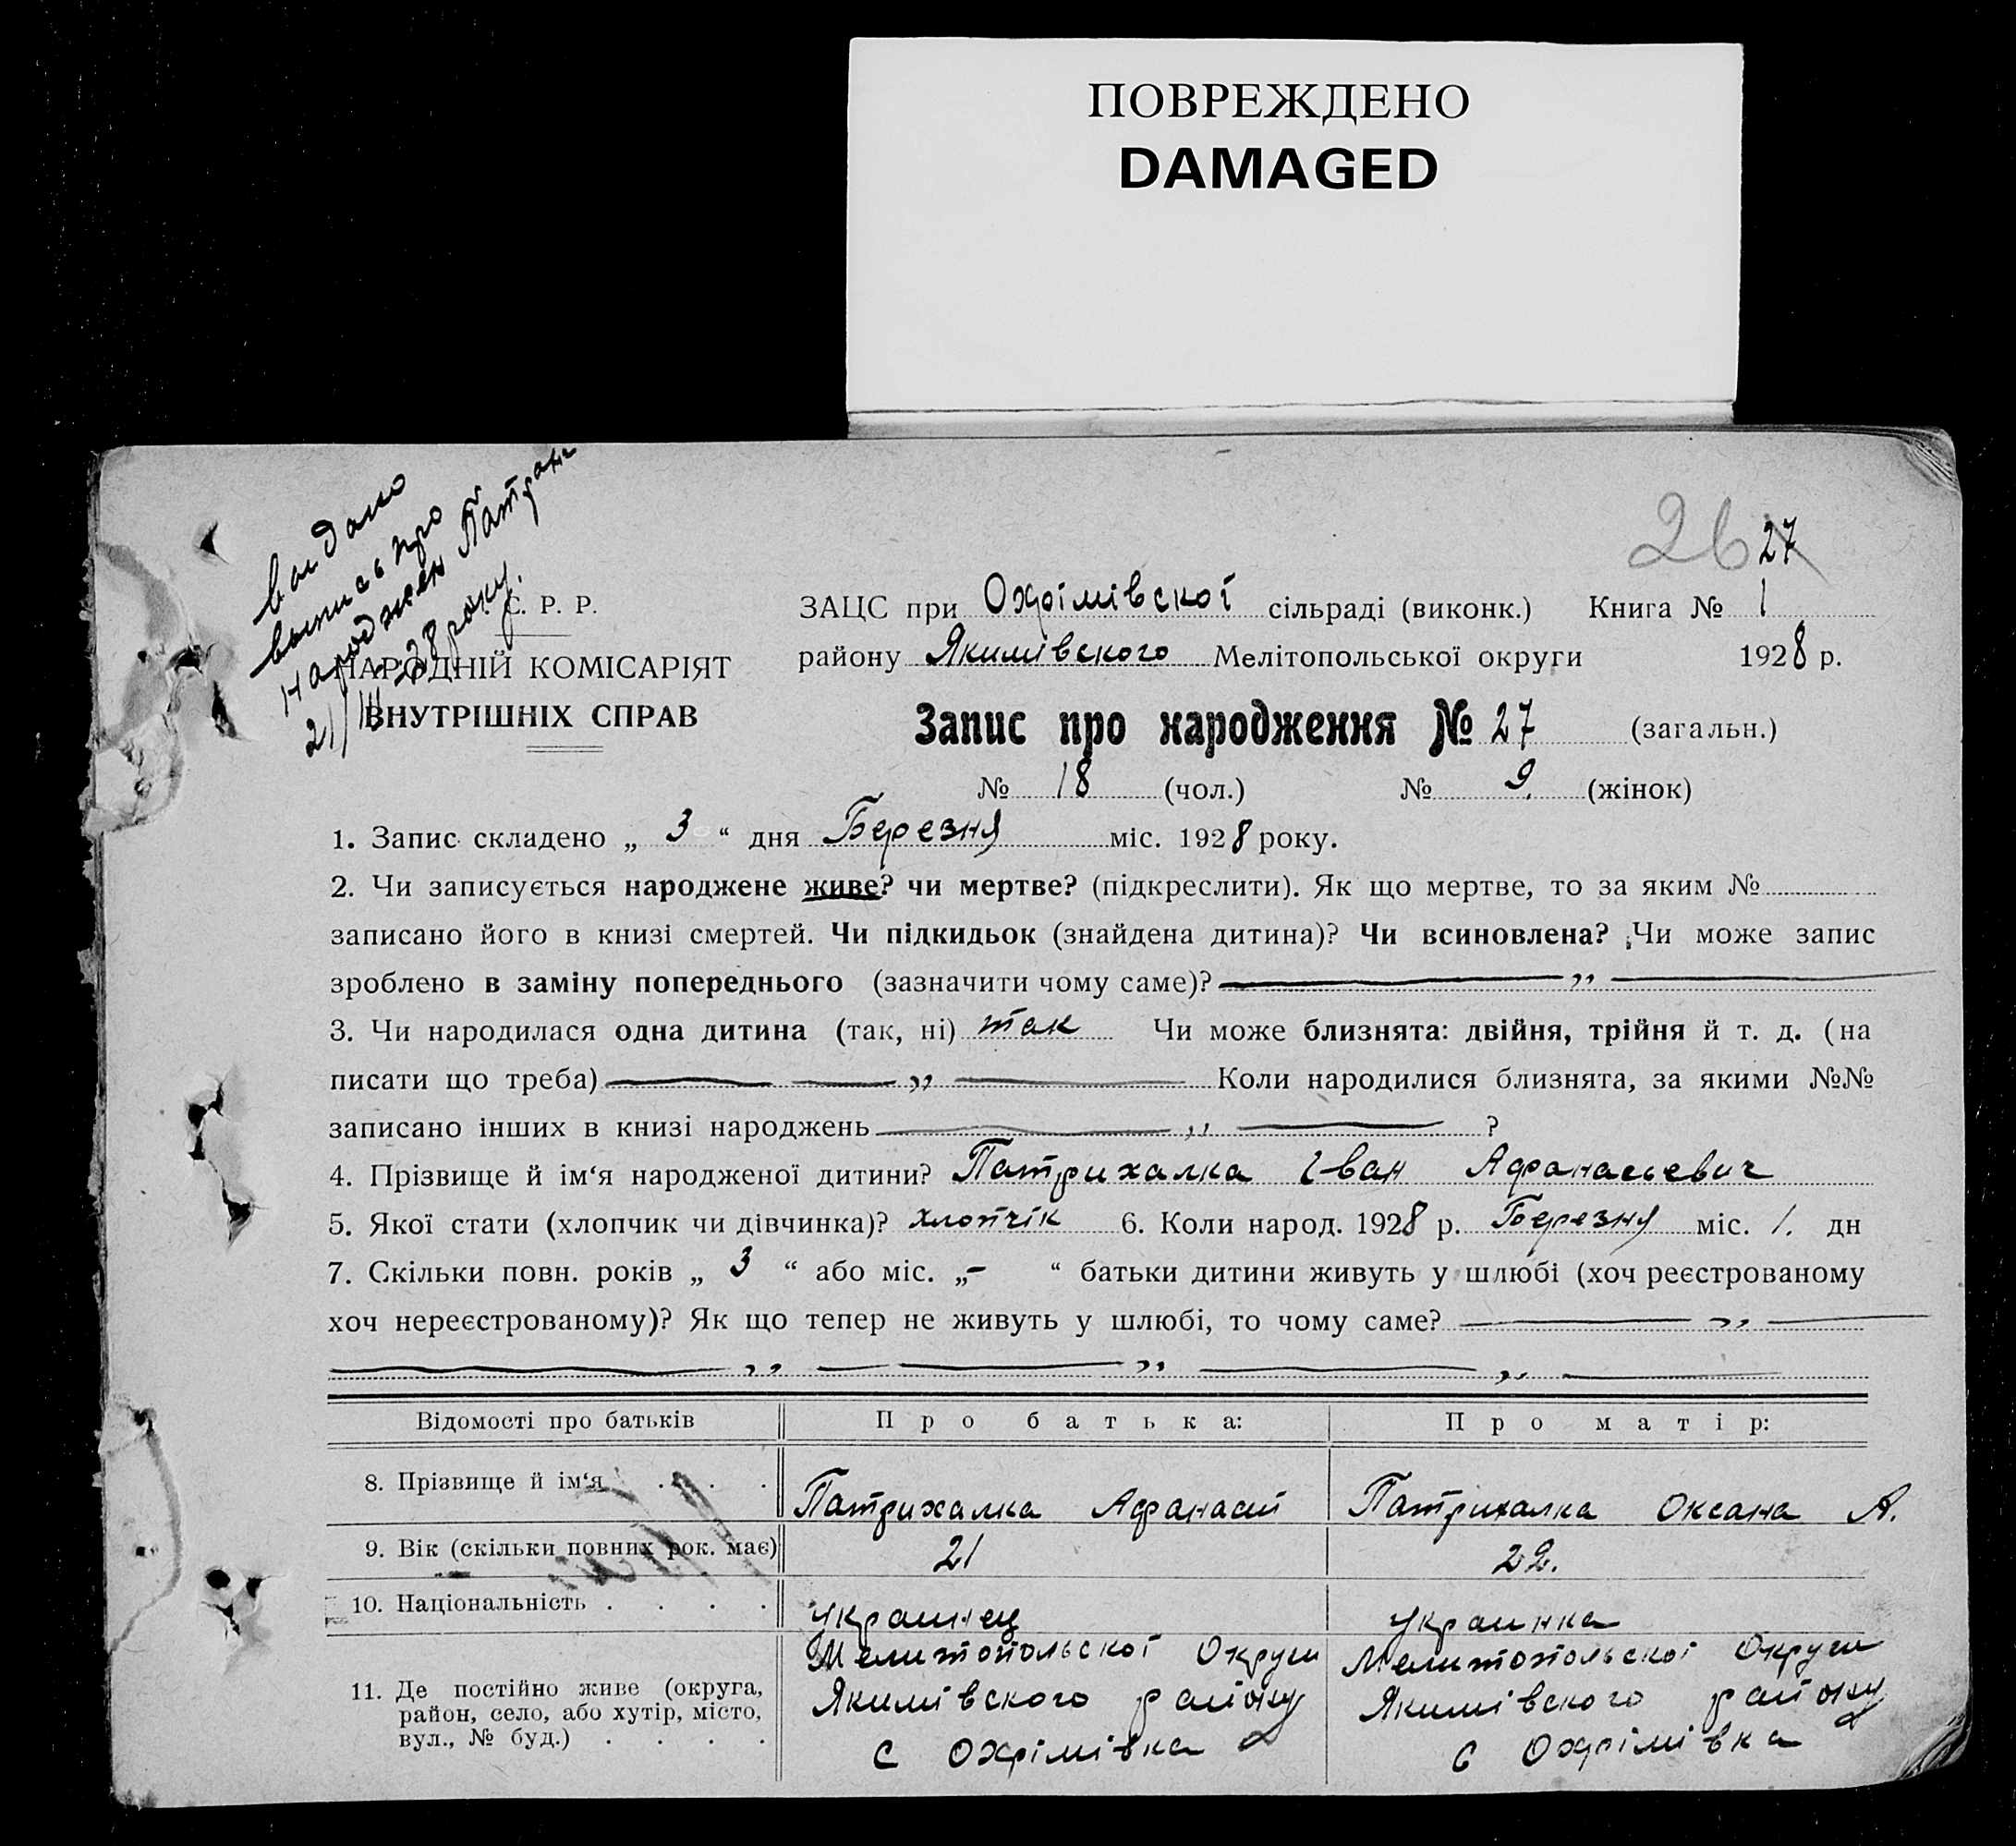 ПОВРЕЖДЕНО
DAMAGED
видано
выпись про
народжен
21/III-28 року.
26 27
С. Р. Р.
НАРОДНІЙ КОМІСАРІЯТ
ВНУТРІШНІХ СПРАВ
ЗАЦС при Охрімівскої сільраді (виконк.) Книга № 1
району Якимівского Мелітопольської округи 1928 р.
Запис про народження № 27 (загальн.)
№ 18 (чол.) № 9. (жінок)
1. Запис складено „ 3 “ дня Березня міс. 1928 року.
2. Чи записується народжене живе? чи мертве? (підкреслити). Як що мертве, то за яким №
записано його в книзі смертей. Чи підкидьок (знайдена дитина)? Чи всиновлена? Чи може запис
зроблено в заміну попереднього (зазначити чому саме)? — „ —
3. Чи народилася одна дитина (так, ні) так Чи може близнята: двійня, трійня й т. д. (на
писати що треба) — — „ — Коли народилися близнята, за якими №№
записано інших в книзі народжень — „ — ?
4. Прізвище й ім‘я народженої дитини? Патрихалка Іван Афанасьевич
5. Якої стати (хлопчик чи дівчинка)? хлопчік 6. Коли народ. 1928 р. Березня міс. 1. дн
7. Скільки повн. років „ 3 “ або міс. „ - “ батьки дитини живуть у шлюбі (хоч реєстрованому
хоч нереєстрованому)? Як що тепер не живуть у шлюбі, то чому саме? — „ —
— „ — — „ — „ —
Відомості про батьків Про батька: Про матір:
8. Прізвище й ім‘я . . . . Патрихалка Афанасій Патрихалка Оксана А.
9. Вік (скільки повних рок. має) 21 22.
10. Національність . . . . украинец украинка
11. Де постійно живе (округа, район, село, або хутір, місто, вул., № буд.) . . . .
Мелитопольскої Округи
Якимівского району
с Охрімівка
Мелитопольскої Округи
Якимівского району
с Охрімівка